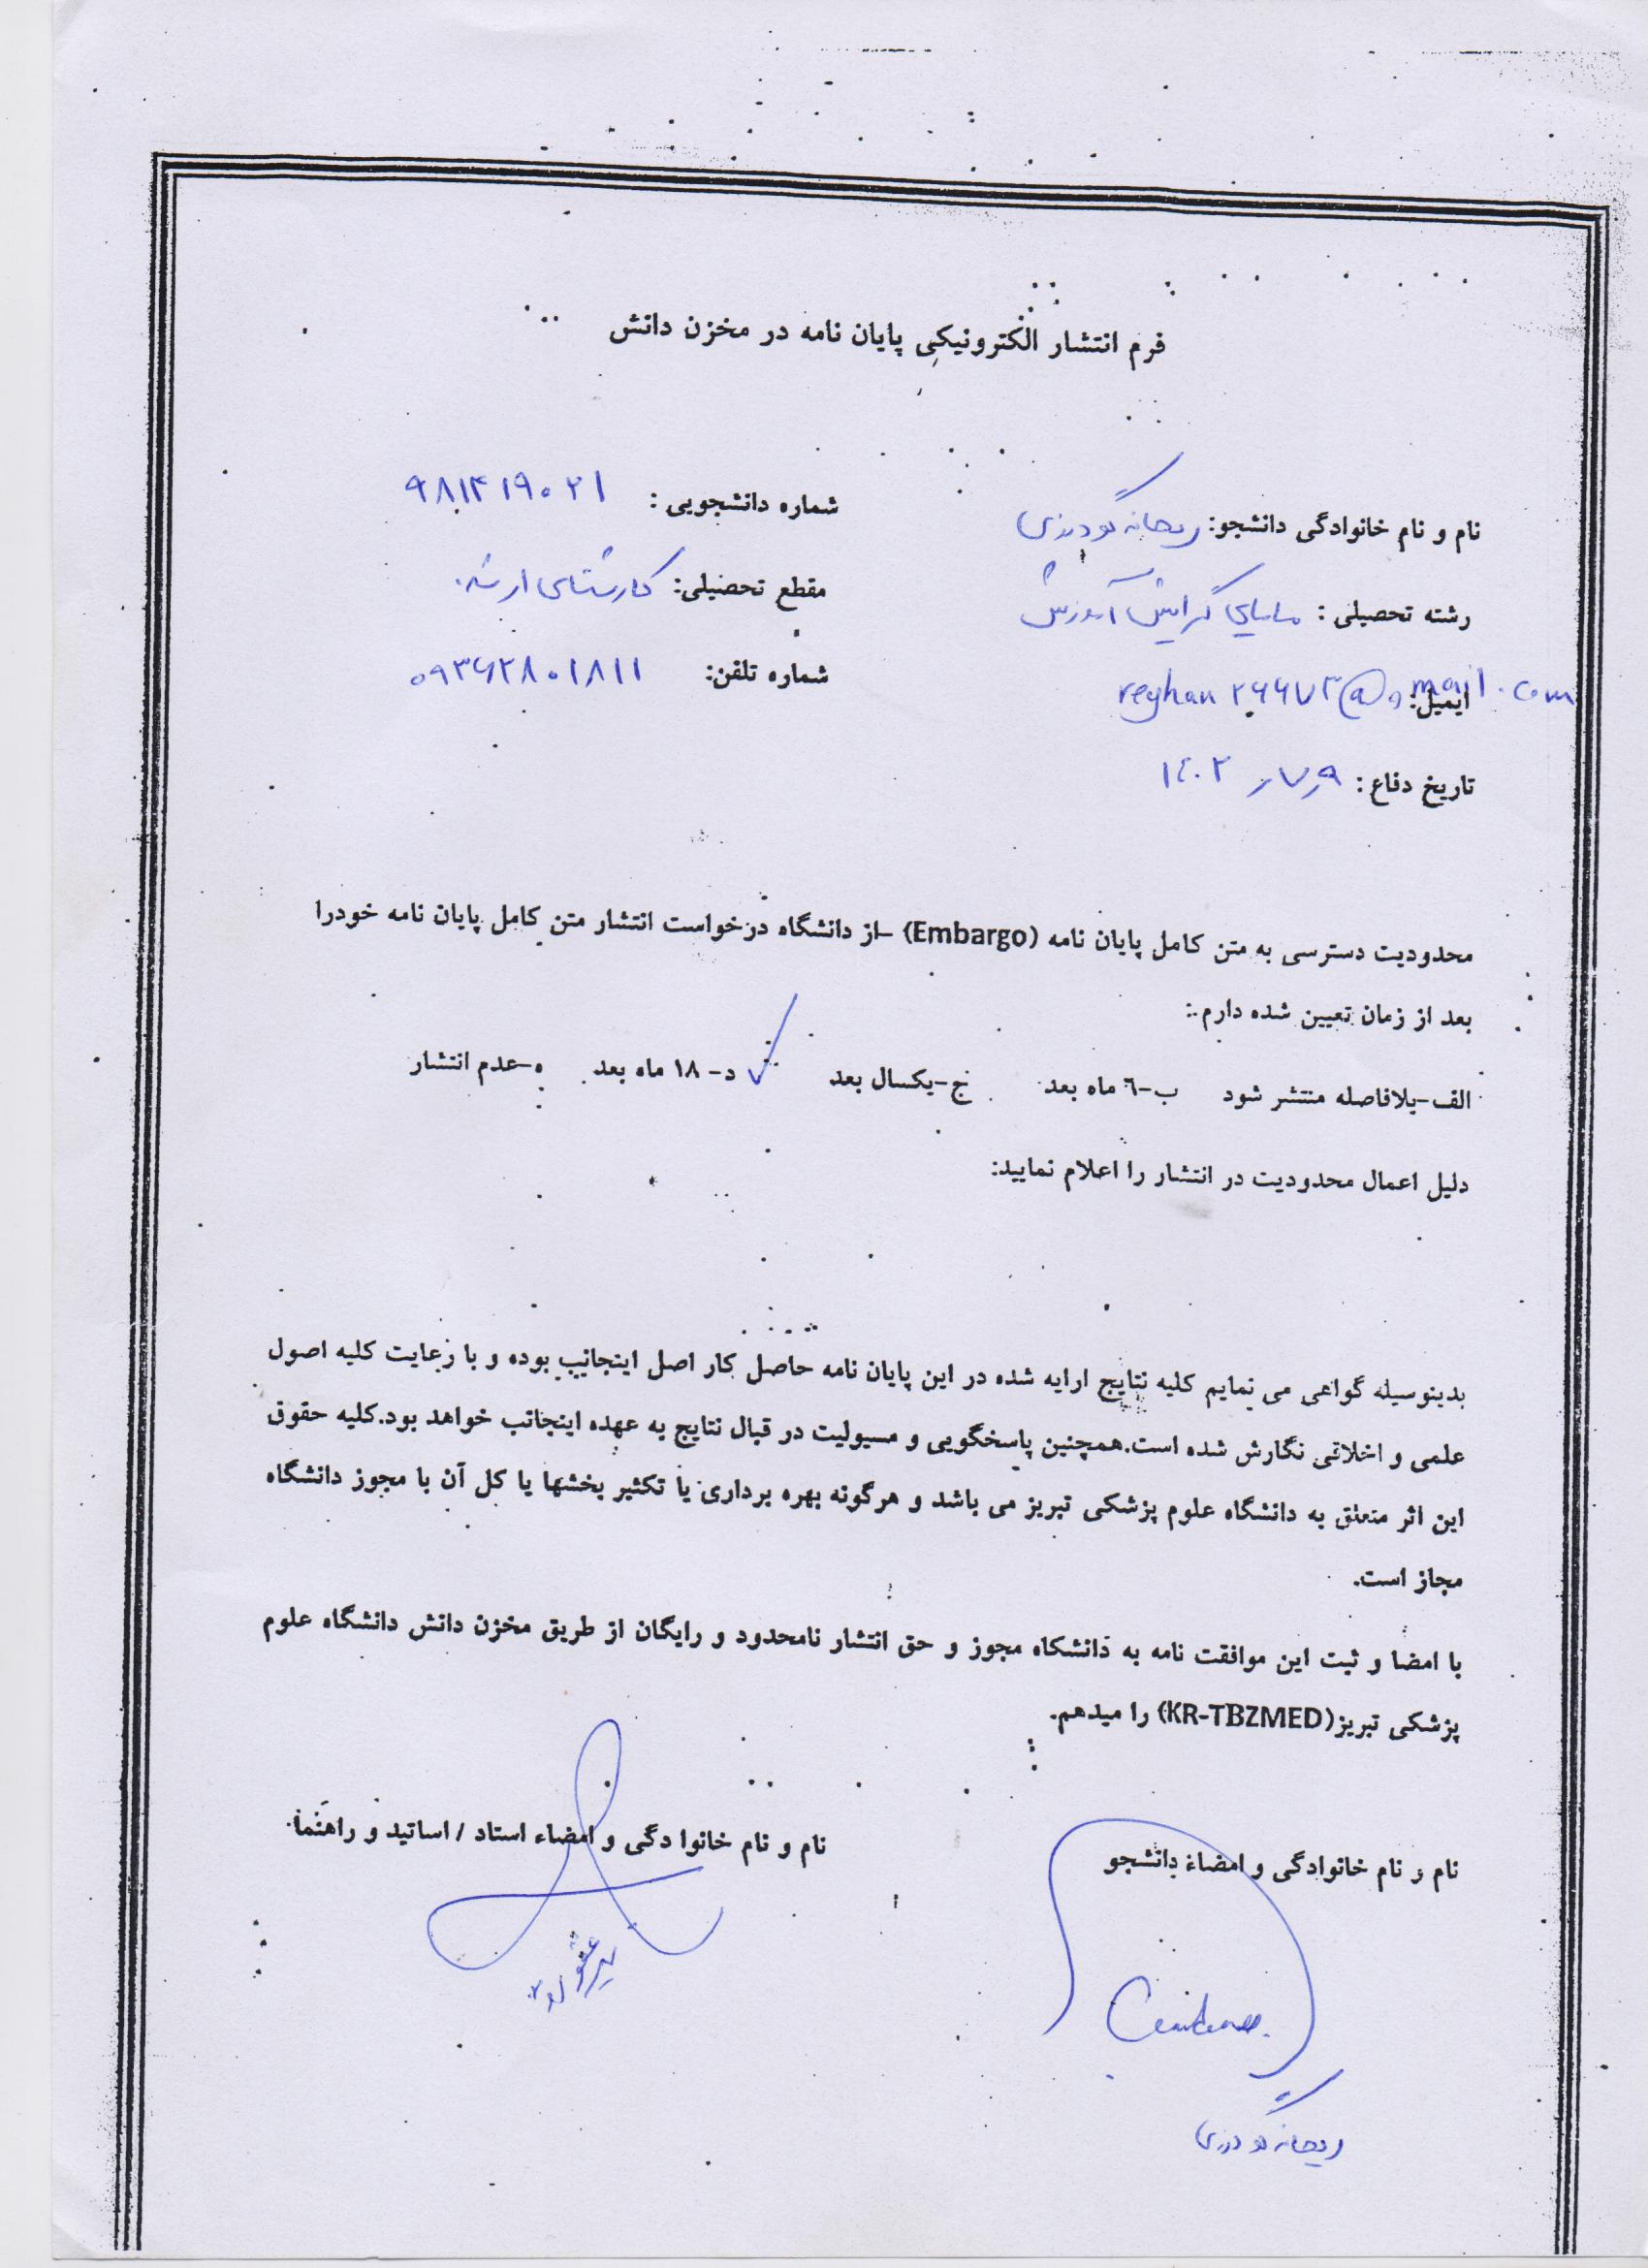 فرم انتشار الکترونیکی پایان نامه در مخزن دانش
نام و نام خانوادگی دانشجو: ریحانه گودرزی
شماره دانشجویی: ۹۸۱۴۱۹۰۲۱
رشته تحصیلی: مامایی گرایش آموزش
مقطع تحصیلی: کارشناسی ارشد
ایمیل: reyhan ۲۶۶۷۳@gmail.com
شماره تلفن: ۰۹۳۶۲۸۰۱۸۱۱
تاریخ دفاع: ۹ر۷ر۱۴۰۲
محدودیت دسترسی به متن کامل پایان نامه (Embargo) -از دانشگاه درخواست انتشار متن کامل پایان نامه خودرا
بعد از زمان تعیین شده دارم:
الف-بلافاصله منتشر شود ب-٦ ماه بعد ج-یکسال بعد ✓ د- ۱۸ ماه بعد ه-عدم انتشار
دلیل اعمال محدودیت در انتشار را اعلام نمایید:
بدینوسیله گواهی می نمایم کلیه نتایج ارایه شده در این پایان نامه حاصل کار اصل اینجانب بوده و با رعایت کلیه اصول
علمی و اخلاقی نگارش شده است.همچنین پاسخگویی و مسیولیت در قبال نتایج به عهده اینجانب خواهد بود.کلیه حقوق
این اثر متعلق به دانشگاه علوم پزشکی تبریز می باشد و هرگونه بهره برداری یا تکثیر بخشها یا کل آن با مجوز دانشگاه
مجاز است.
با امضا و ثبت این موافقت نامه به دانشکاه مجوز و حق انتشار نامحدود و رایگان از طریق مخزن دانش دانشگاه علوم
پزشکی تبریز(KR-TBZMED) را میدهم.
نام و نام خانوادگی و امضاء دانشجو
نام و نام خانوا دگی و امضاء استاد / اساتید و راهنما
ریحانه گودرزی